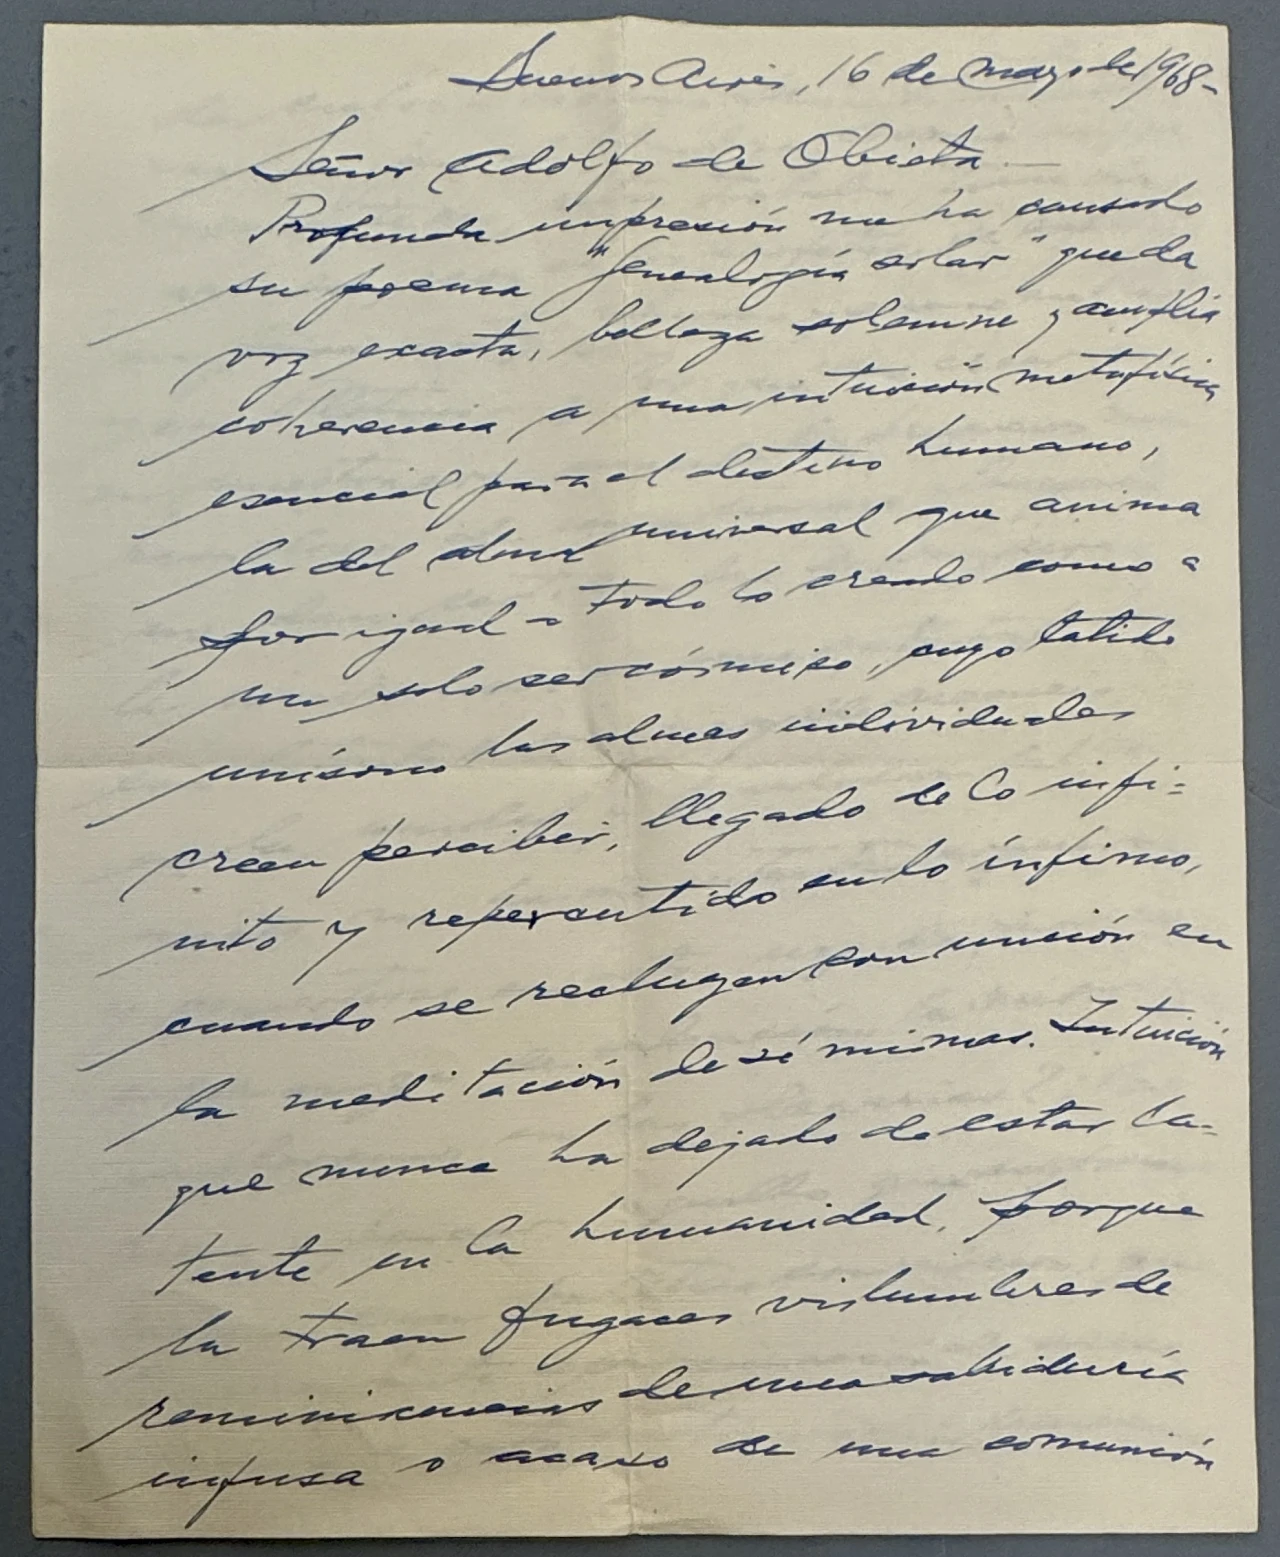 Buenos Aires, 16 de mayo de 1968-
Señor Adolfo de Obieta
Profunda impresión me ha causado
su poema "Genealogía solar" que da
voz exacta, belleza solemne y amplia
coherencia a una intuición metafísica
esencial para el destino humano,
la del alma universal que anima
por igual a todo lo creado como a
un solo ser cósmico, cuyo latido
unísono las almas individuales
creen percibir, llegado de lo infi=
nito y repercutido en lo ínfimo,
cuando se recluyen con unción en
la meditación de sí mismas. Intuición
que nunca ha dejado de estar la-
tente en la humanidad, porque
la traen fugaces vislumbres de
reminiscencias de una sabiduría
infusa o acaso de una comunión